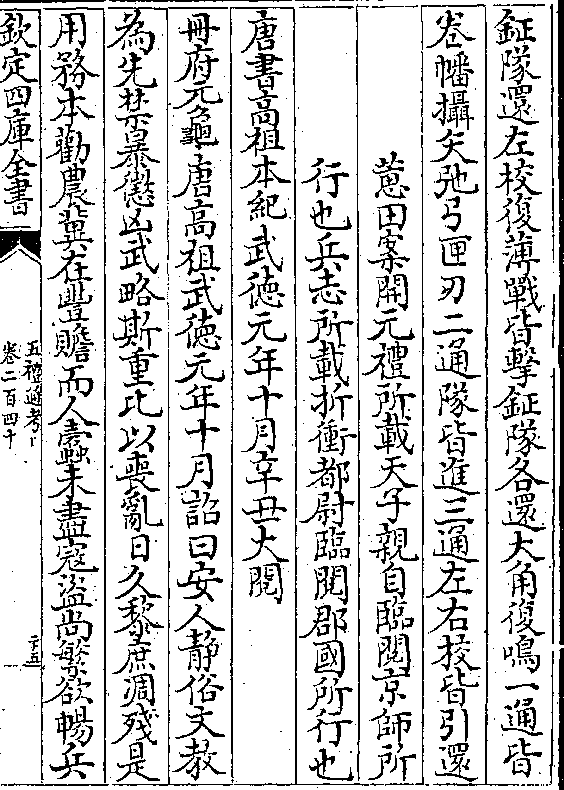 鉦隊還左校復薄戰皆擊鉦隊各還大角復鳴一通皆
卷幡攝矢弛弓匣刃二通隊皆進三通左右校皆引還
蕙田案開元禮所載天子親自臨閱京師所
行也兵志所載折衝都尉臨閱郡國所行也
唐書高祖本紀武德元年十月辛丑大閱
冊府元龜唐高祖武德元年十月詔曰安人静俗文教
為先禁暴懲凶武略斯重比以喪亂日久黎庶凋殘是
用務本勸農冀在豐贍而人蠹未盡寇盜尚繁欲暢兵
欽定四庫全書
五禮通考
卷二百四十
二五